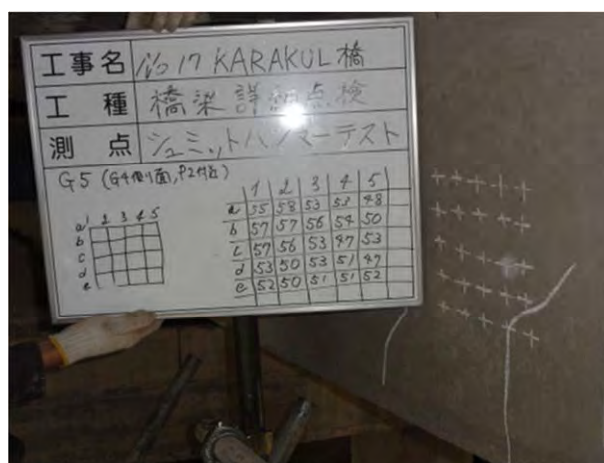 工事名 No 17 KARAKUL橋
工種 橋梁詳細点検
測点 シュミットハンマーテスト
G5 (G4側面, P2付近)
1 2 3 4 5
a
b
c
d
e
1 2 3 4 5
a 55 58 53 53 48
b 57 57 56 54 50
c 57 56 53 47 53
d 53 50 53 51 47
e 52 50 51 51 52